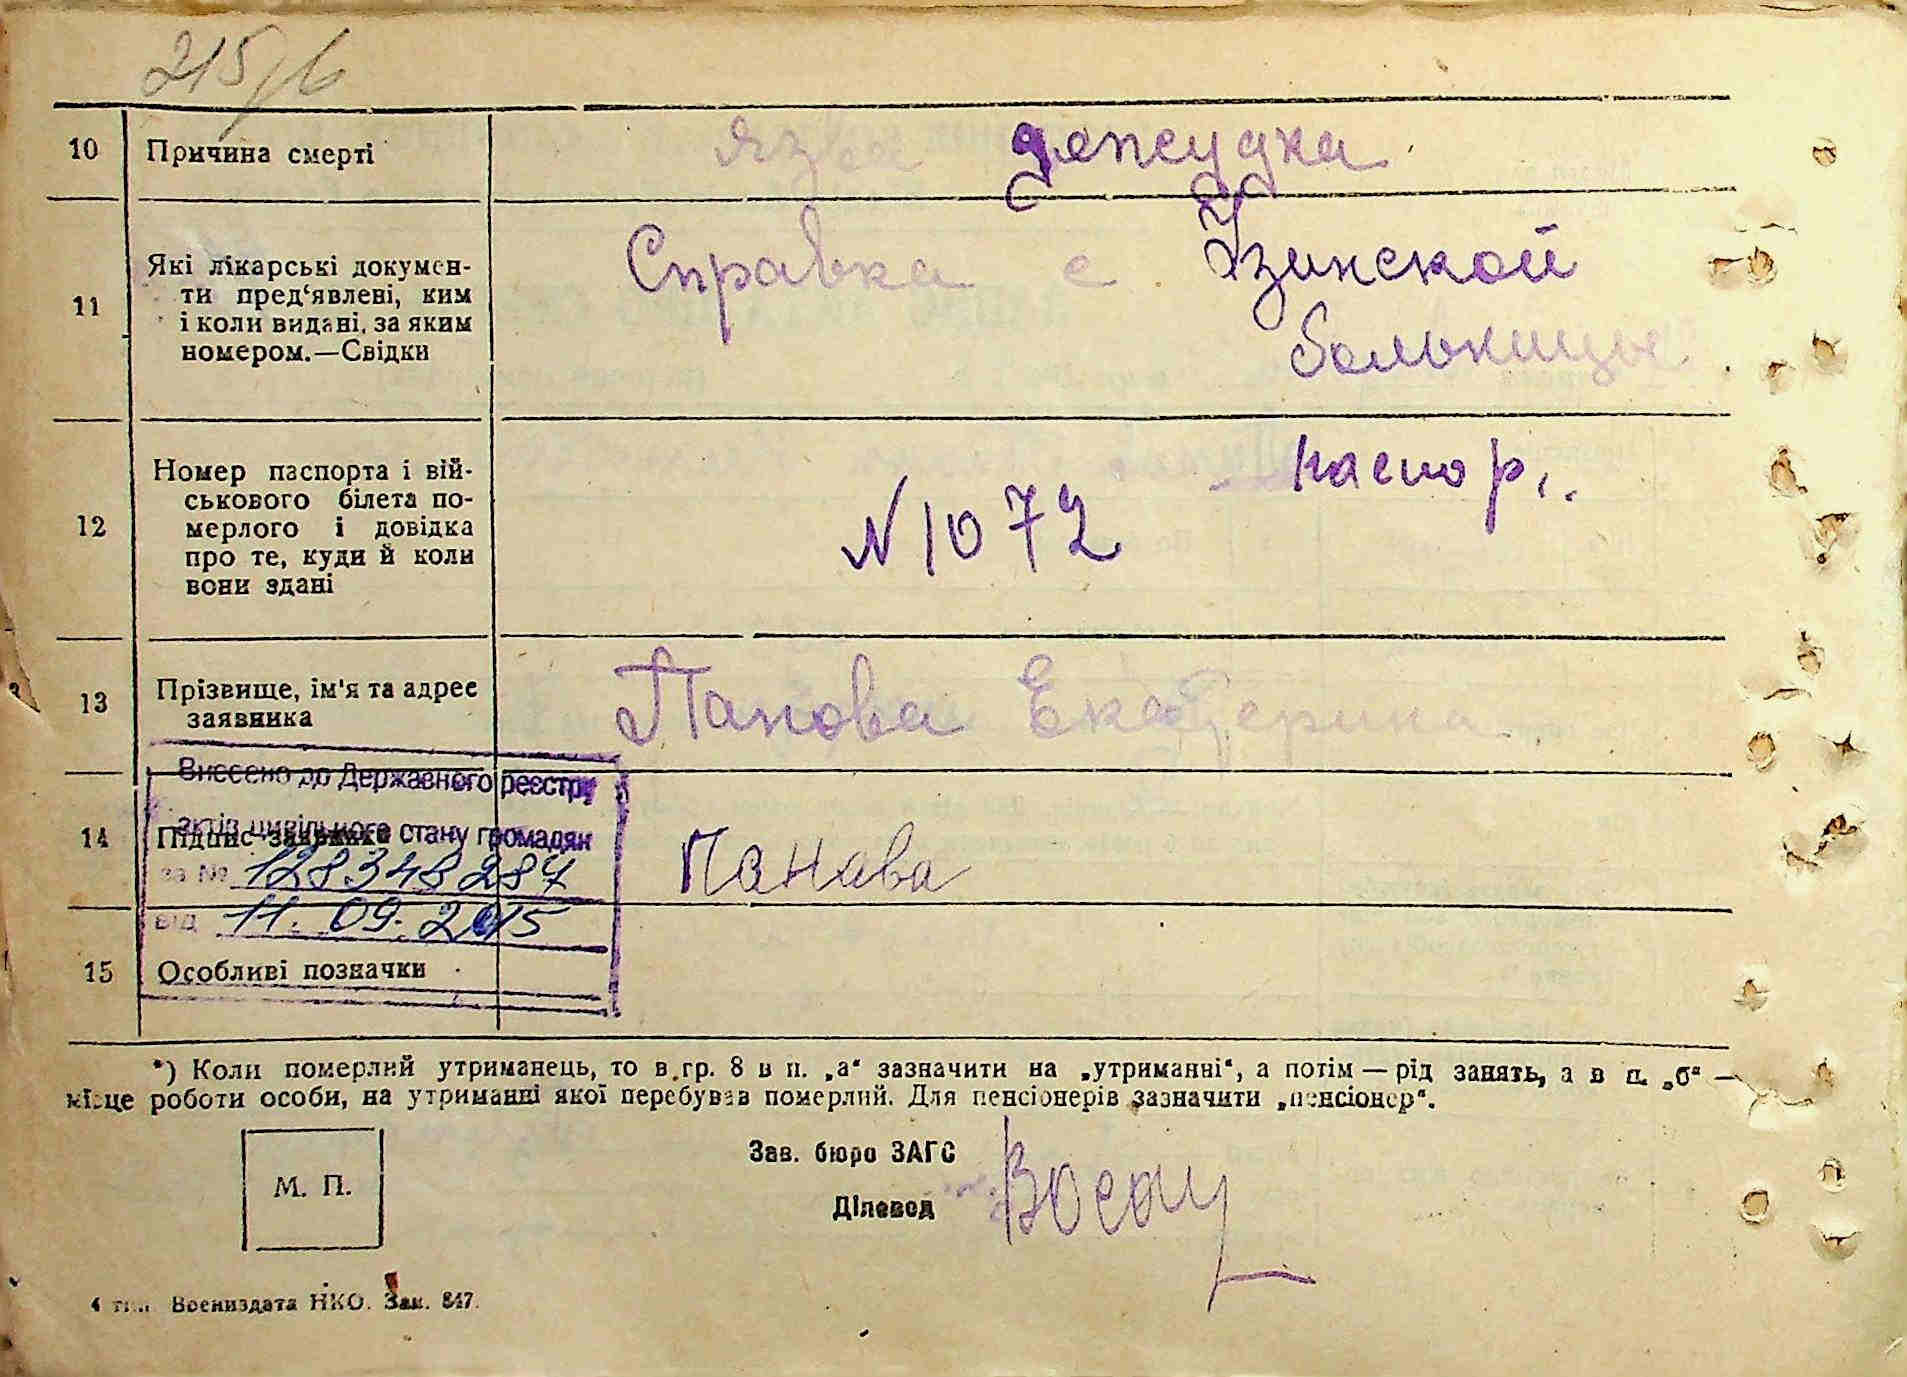 215/6
10 Причина смерті Язва желудка
11 Які лікарські докумен-
ти пред‘явлені, ким
і коли видані, за яким
номером.—Свідки
Справка с Узинской
больницы
12 Номер паспорта і вій-
ськового білета по-
мерлого і довідка
про те, куди й коли
вони здані
паспор..
N 1072
13 Прізвище, ім'я та адрес
заявника
Панова Екатерина
Внесено до Державного реєстру
актів цивільного стану громадян
за № 128348287
від 11.09.2015
14 Підпис заявника Панава
15 Особливі позначки
*) Коли померлий утриманець, то в гр. 8 в п. „а“ зазначити на „утриманні“, а потім — рід занять, а в п. „б“ —
місце роботи особи, на утриманні якої перебував померлий. Для пенсіонерів зазначити „пенсіонер“.
М. П.
Зав. бюро ЗАГС
Діловод
4 тип. Воениздата НКО. Зак. 847.